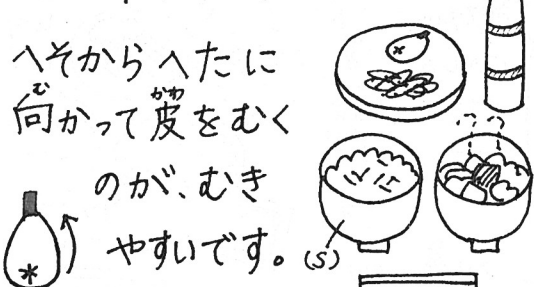 へそからへたに
向かって皮をむく
のが、むき
やすいです。
(S)